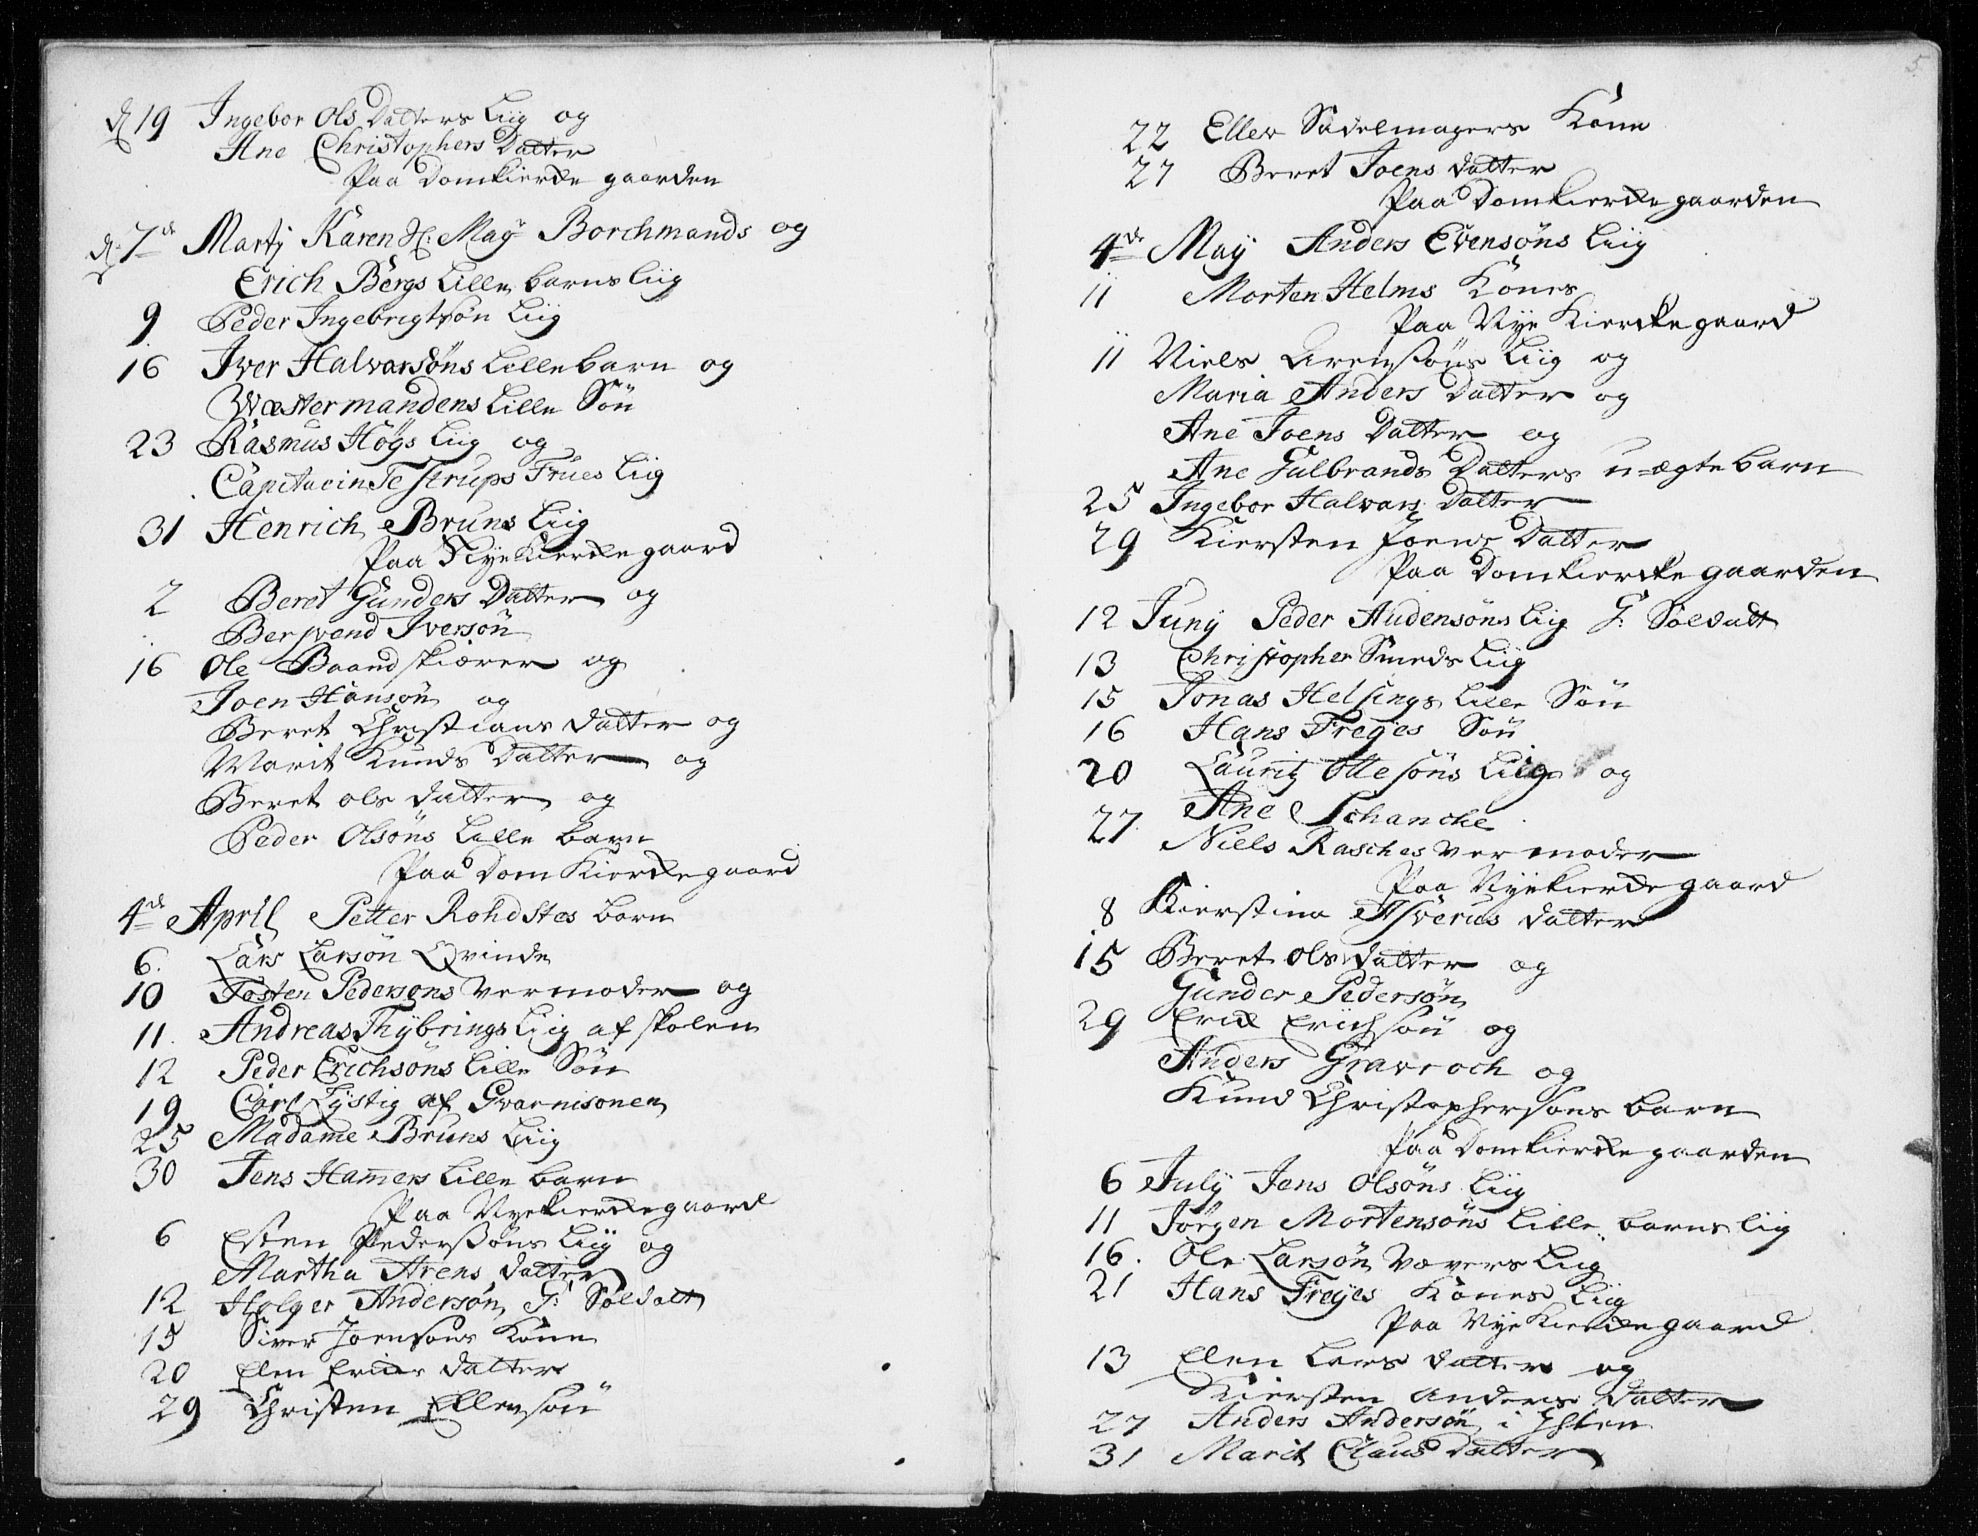 d 19 Ingebor Ols Datters Liig og
Ane Christophers Datter
Paa Domkiercke gaarden
d: 7de Martj Karen Sl: May Borchmands og
Erich Bergs Lille barns liig
9 Peder Ingebrigtsøn Liig
16 Iver Halvarsøns Lille barn og
Wæstermandens Lille Søn
23 Rasmus Høgs Liig og
Capitaein Testrups Frues Liig
31 Henrich Bruns Liig
Paa Nye Kierckegaard
2 Beret Gunders Datter og
Bersvend Iversøn
16 Ole Baandskiærer og
Joen Hansøn og
Beret Christians datter og
Marit Knuds Datter og
Beret ols datter og
Peder Olsøns Lille barn
Paa Dom Kierckegaard
4de Aprill Petter Rohdstes barn
6. Lars Larsøn Qvinde
10 Tosten Pedersøns Vermoder og
11. Andreas Thybrings Liig af skolen
12 Peder Erichsøns Lille Søn
19 Carl Lystig af Gvarnisonen
25 Madame Bruns Liig
30 Jens Hamers Lille barn
Paa Nyekierckegaard
6 Esten Pederssøns Liig og
Martha Arens datter
12 Holger Andersøn G: Soldatt
15 Siver Joensøns Kone
20 Elen Erichs datter
29 Christen Ellensøn
5
22 Ellev Sadelmagers Kone
27 Beret Joens datter
Paa Domkierckegaarden
4de May Anders Evensøns Liig
11 Morten Helms Kones
Paa Nye Kierckegaard
11 Niels Arenssøns Liig og
Maria Anders Datter og
Ane Joens Datter og
Ane Gulbrands Datters u-ægte barn
25 Ingebor Halvars Datter
29 Kiersten Joens Datter
Paa Domkiercke gaarden
12 Juny Peder Audensøns Liig G: Soldatt
13 Christopher Smeds Liig
15 Jonas Helsings Lille Søn
16 Hans Freyes Søn
20 Lauritz Ottesøns Liig og
Ane Schancke
27. Niels Rasches Vermoder
Paa Nyekierckegaard
8 Kierstina Asverus datter
15 Beret Olsdatter og
Gunder Pedersøn
29 Erick Erichsøn og
Anders Gravroch og
Knud Christophersøns barn
Paa Domkierckegaarden
6 July Jens Olsøns Liig
11 Jørgen Mortensøns Lille barns lig
16. Ole Larsøn Vævers Liig
21 Hans Freyes Kones Liig
Paa Nye Kierckegaard
13 Elen Lars datter og
Kiersten Anders Datter
27 Anders Andersøn i
31 Marit Claus Datter